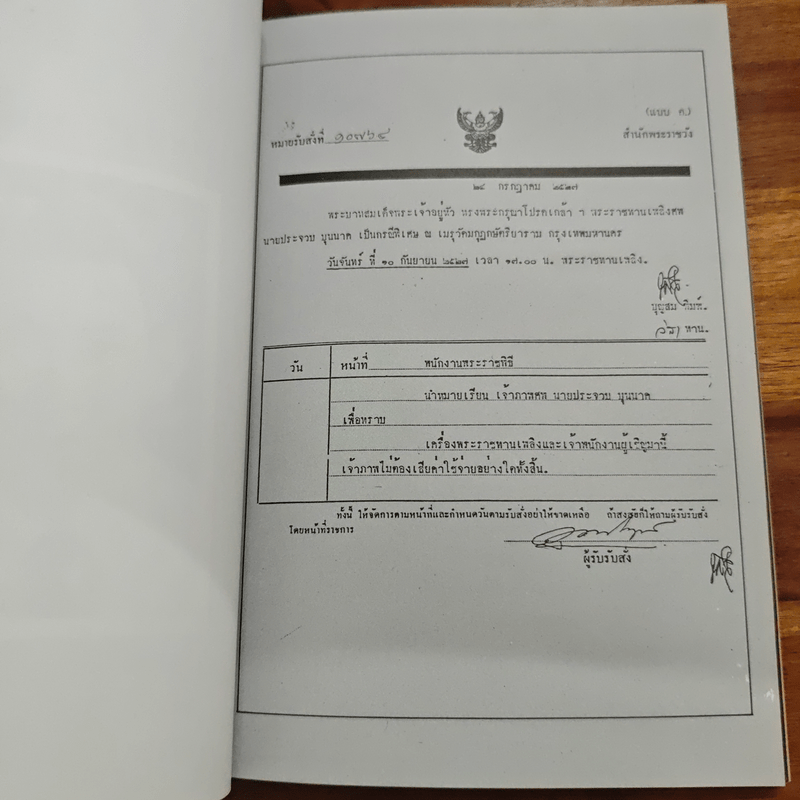 (แบบ ค.)
หมายรับสั่งที่ ๑๐๗๖๔
สำนักพระราชวัง
๒๔ กรกฎาคม ๒๕๒๗
พระบาทสมเด็จพระเจ้าอยู่หัว ทรงพระกรุณาโปรดเกล้า ฯ พระราชทานเพลิงศพ
นายประจวบ บุนนาค เป็นกรณีพิเศษ ณ เมรุวัดมกุฏกษัตริยาราม กรุงเทพมหานคร
วันจันทร์ ที่ ๑๐ กันยายน ๒๕๒๗ เวลา ๑๗.๐๐ น. พระราชทานเพลิง.
บุญสม พิมพ์.
ทาน.
วัน
หน้าที่ พนักงานพระราชพิธี
นำหมายเรียน เจ้าภาพศพ นายประจวบ บุนนาค
เพื่อทราบ
เครื่องพระราชทานเพลิงและเจ้าพนักงานผู้เชิญมานี้
เจ้าภาพไม่ต้องเสียค่าใช้จ่ายอย่างใดทั้งสิ้น.
ทั้งนี้ ให้จัดการตามหน้าที่และกำหนดวันตามรับสั่งอย่าให้ขาดเหลือ ถ้าสงสัยก็ให้ถามผู้รับรับสั่ง
โดยหน้าที่ราชการ
ผู้รับรับสั่ง